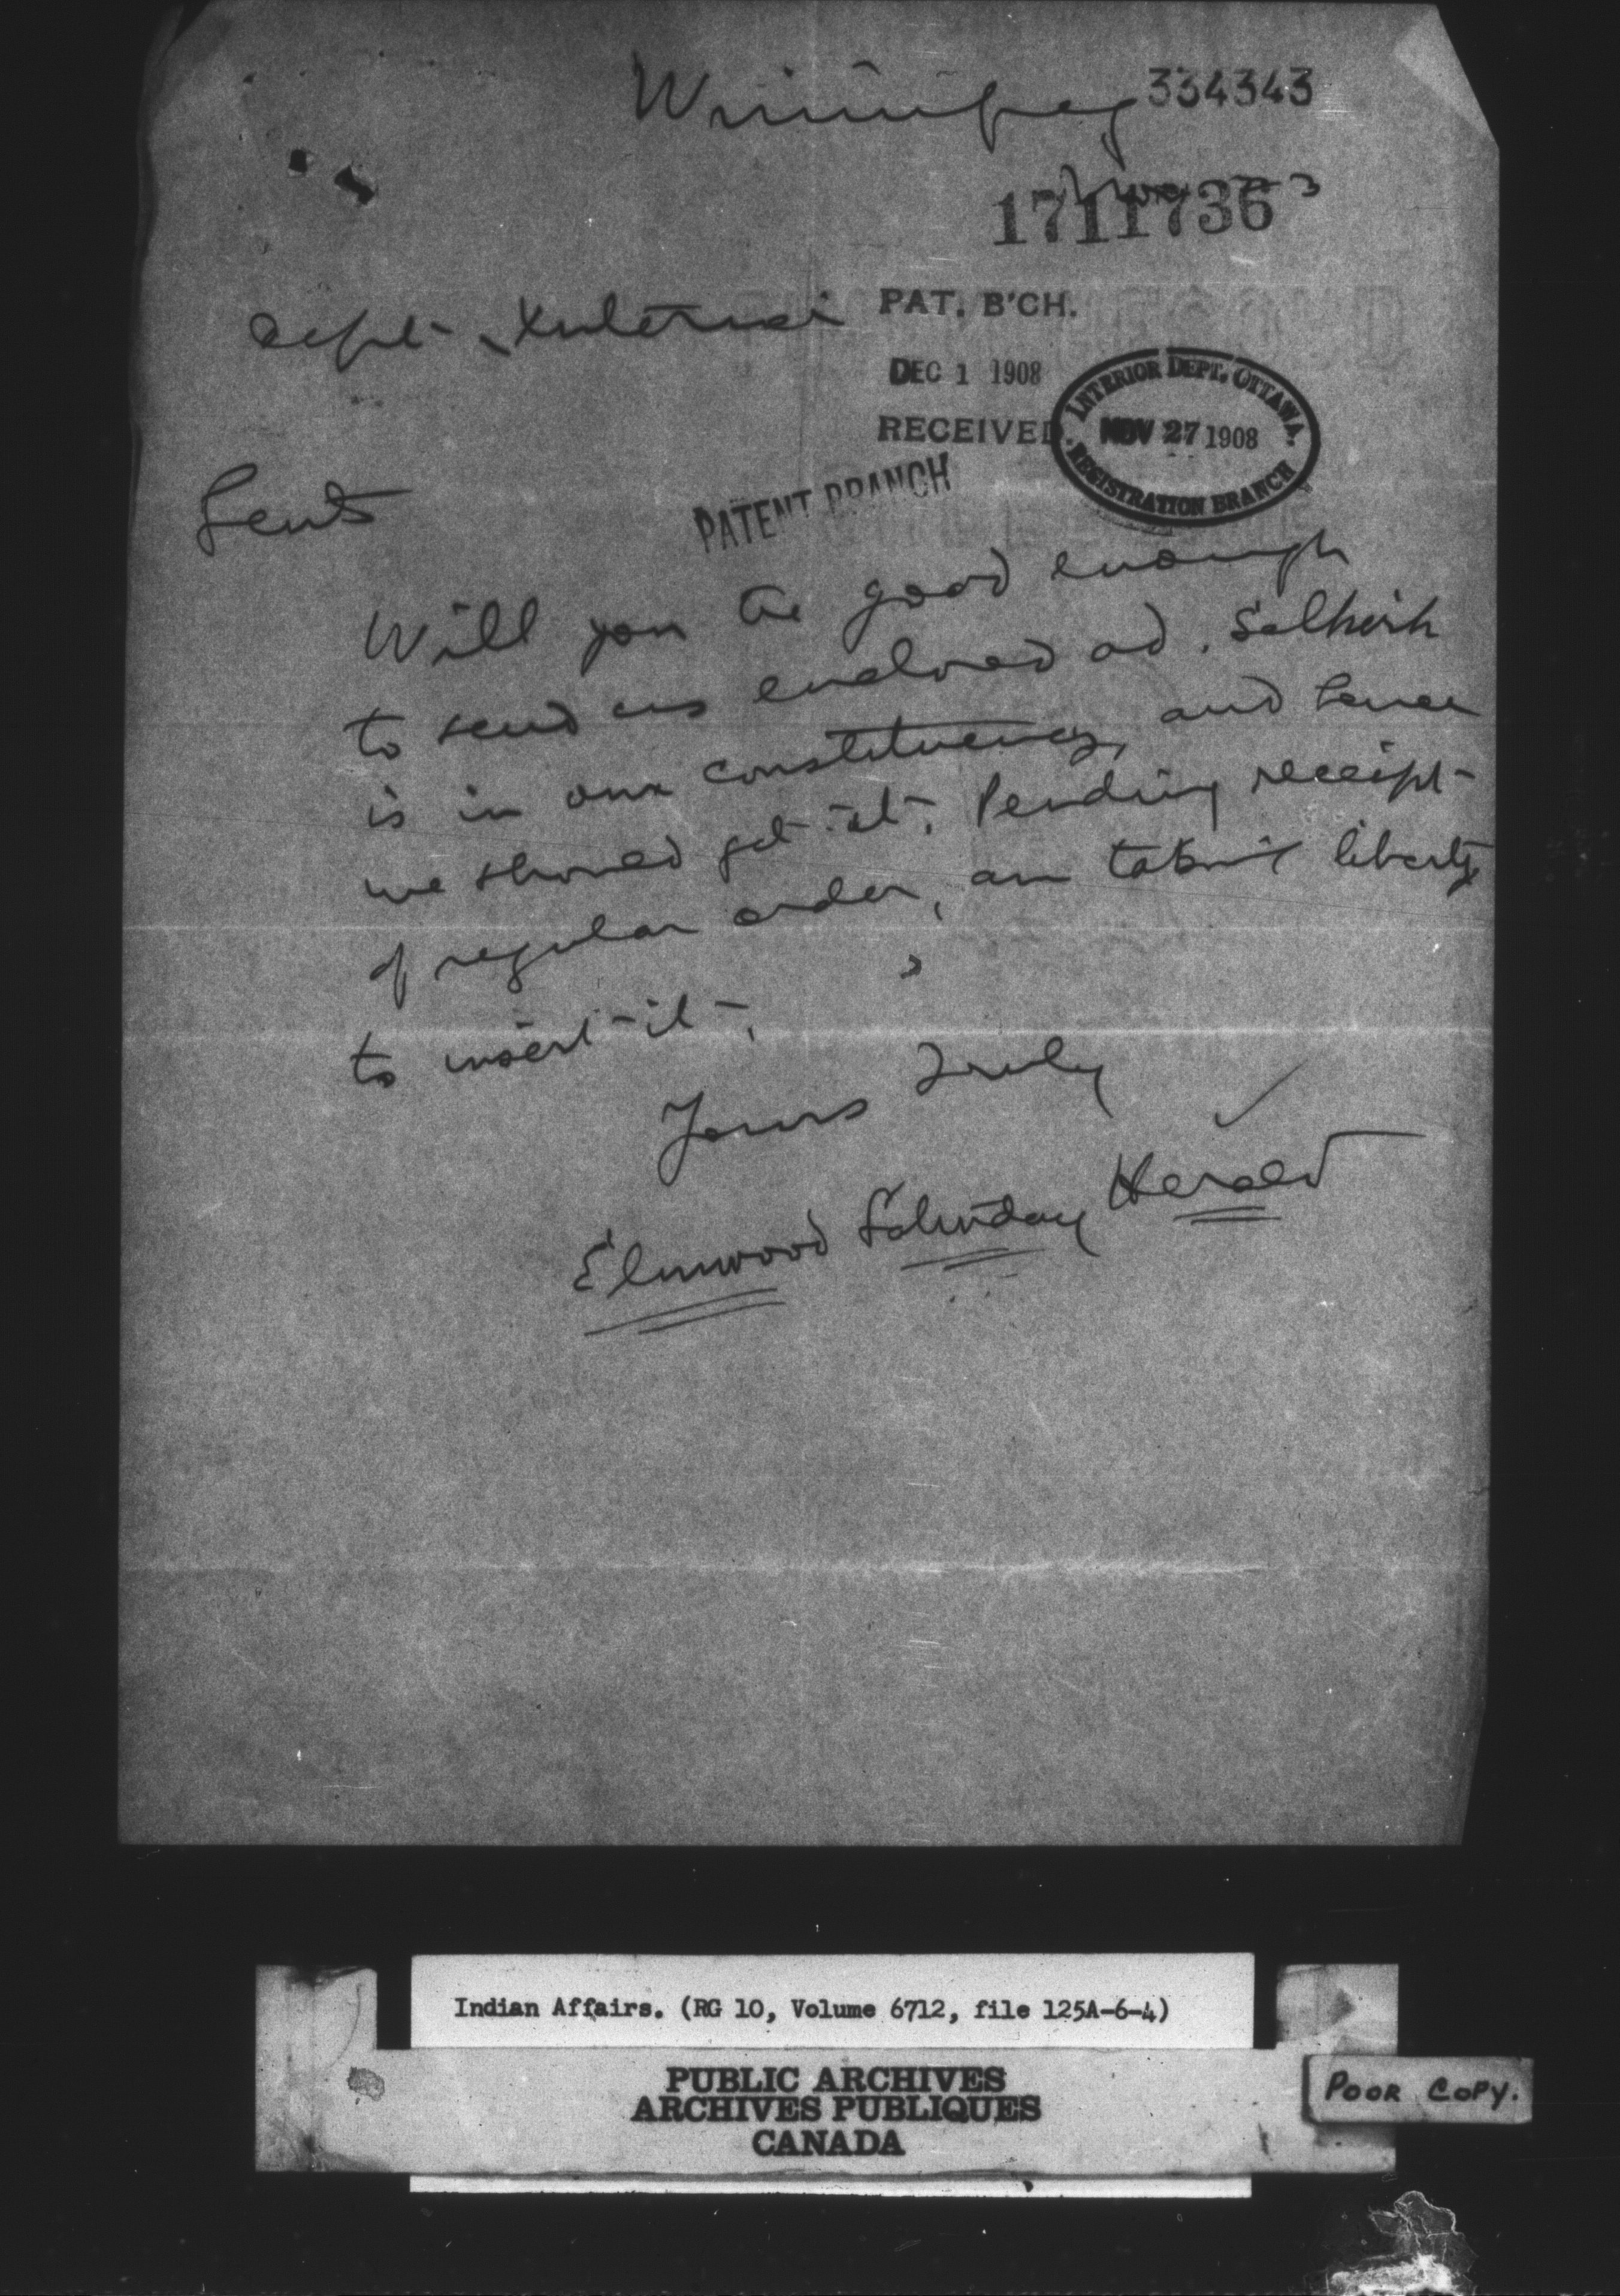 Winnipeg
334343
Nov 23
1711736
Dept. Interior
PAT. B'CH.
DEC 1 1908
RECEIVED.
INTERIOR DEPT. OTTAWA.
NOV 27 1908
REGISTRATION BRANCH
PATENT BRANCH
Gents
Will you be good enough
to send us enclosed ad. Selkirk
is in our constituency, and hence
we should get it. Pending receipt
of regular order, am taking liberty
to insert it.
Yours Truly
Elmwood Saturday Herald
Indian Affairs. (RG 10, Volume 6712, file 125A-6-4)
PUBLIC ARCHIVES
ARCHIVES PUBLIQUES
CANADA
POOR COPY.